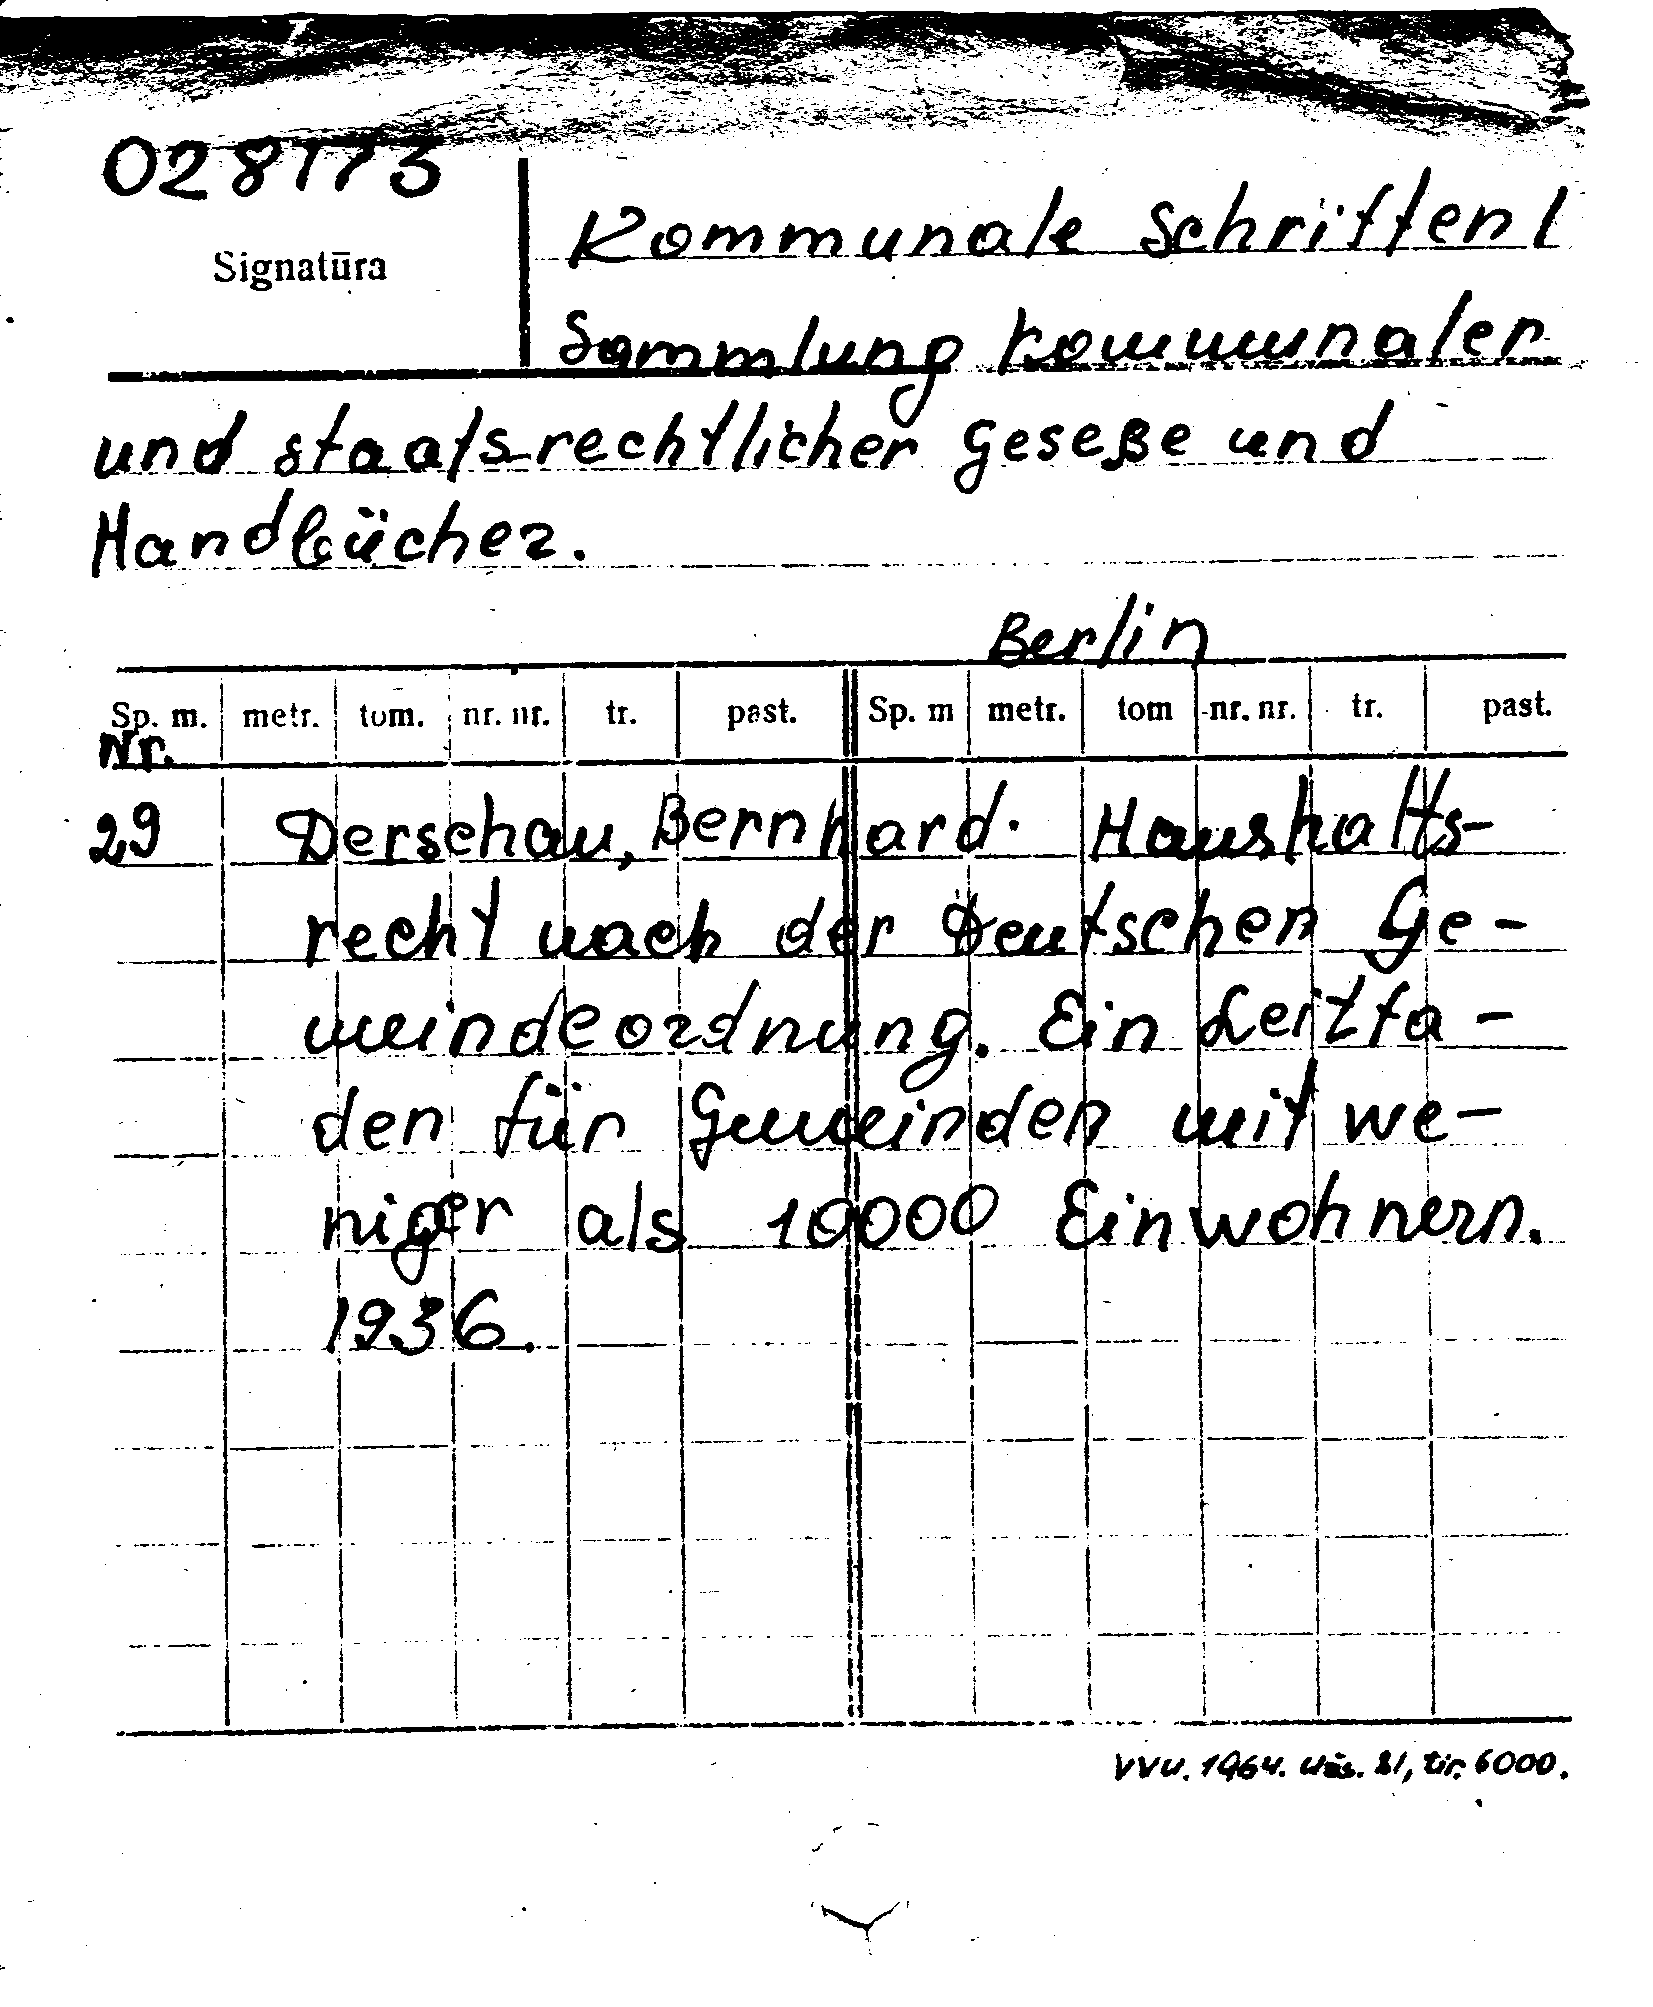 028173
Signatūra
Kommunale Schriften /
Sammlung kommunaler
und staatsrechtlicher Geseße und
Handbücher.
Berlin
Sp. m. metr. tom. nr. nr. tr. past. Sp. m metr. tom nr. nr. tr. past.
Nr.
29 Derschau, Bernhard. Haushalts-
recht nach der Deutschen Ge-
meindeordnung. Ein Leitfa-
den für Gemeinden mit we-
niger als 10000 Einwohnern.
1936.
VVU. 1964. Užs. 81, tir. 6000.